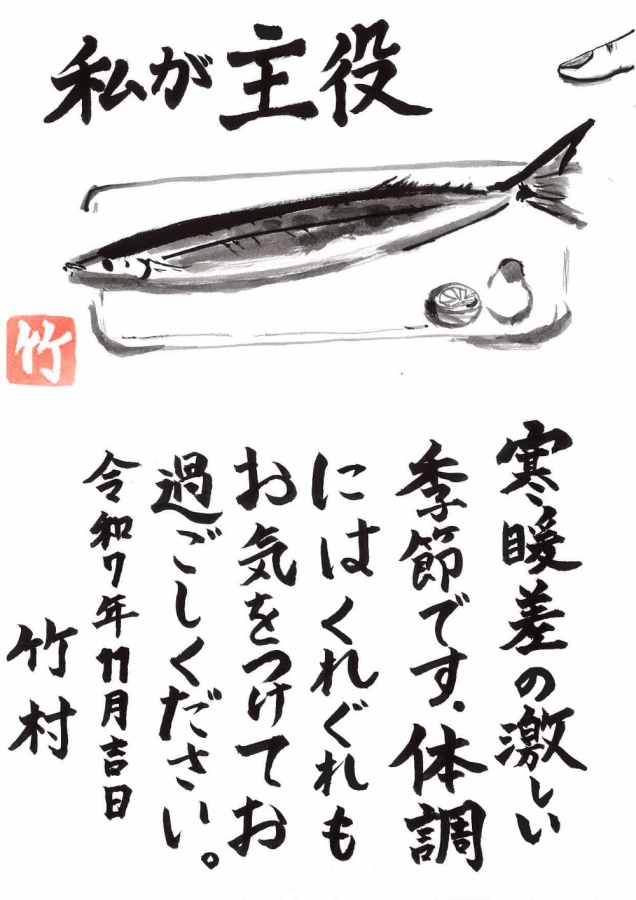 私が主役
竹
寒暖差の激しい
季節です。体調
にはくれぐれも
お気をつけてお
過ごしください。
令和7年11月吉日
竹村